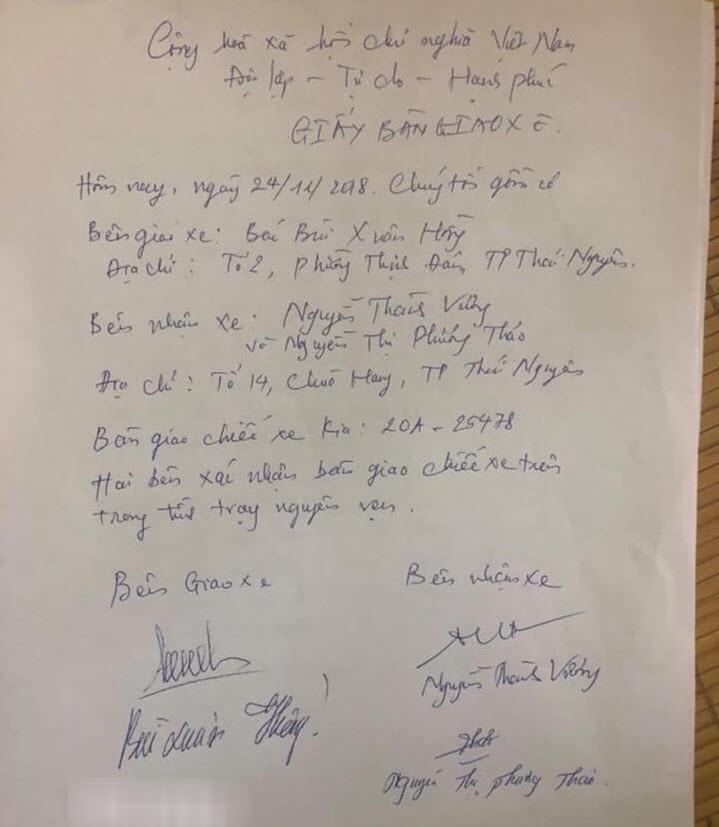 Cộng hoà xã hội chủ nghĩa Việt Nam
Độc lập - Tự do - Hạnh phúc
GIẤY BÀN GIAO XE.
Hôm nay, ngày 24/11/2018. Chúng tôi gồm có
Bên giao xe: Bùi Xuân
Địa chỉ: Tổ 2, phường Thịnh Đán, TP Thái Nguyên.
Bên nhận xe: Nguyễn Thành
và Nguyễn Thị Phương Thảo
Địa chỉ: Tổ 14, Chùa Hang, TP Thái Nguyên
Bàn giao chiếc xe Kia: 20A - 25478
Hai bên xác nhận bàn giao chiếc xe trên
trong tình trạng nguyên vẹn.
Bên Giao xe
Bên nhận xe
Nguyễn Thành
Bùi Xuân
Nguyễn Thị Phương Thảo.